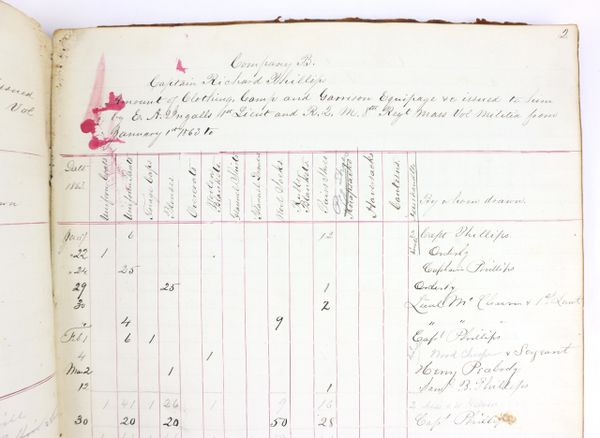 2
Company B.
Captain Richard Phillips
Amount of Clothing, Camp and Garrison Equipage &c issued to him
by E. A. Ingalls 1st Lieut and R. Q. M. 8th Regt Mass Vol Militia from
January 1st 1863 to
Date 1863 Uniform Coats Uniform Pants Forage Caps Blouses Overcoats Woolen Blankets Flannel Shirts Flannel Drawers Wool Socks Blankets Pairs Shoes Knapsacks Haversacks Canteens By whom drawn
6 12 Capt Phillips
22 1 Orderly
24 25 Captain Phillips
29 25 1 Orderly
30 2 Lieut
" 4 9 " "
Feb 1 6 1 Capt Phillips
4 1 & Sergeant
Mar 2 1 Henry Peabody
12 1 B. Phillips
1 41 1 26 1 9 16
30 20 20 50 28 Capt Phillips